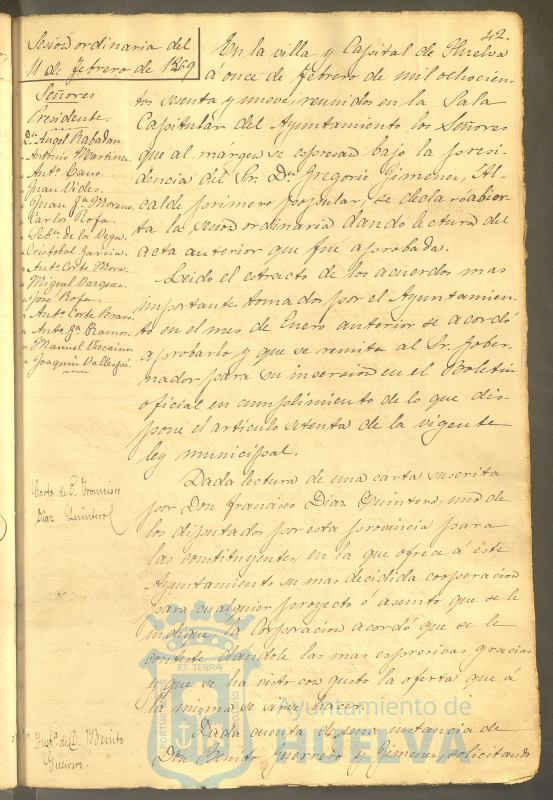 42.
Sesion ordinaria del
11 de febrero de 1869
Señores
Presidente.
Dn. Angel Rabadan.
" Antonio Martinez.
" Anto. Cano.
" Juan Vides.
" Juan Ja. Moreno.
" Carlos Rofa.
" Sebn. de la Vega.
" Cristobal Garcia.
" Anto. Corte Mora.
" Miguel Vazquez.
" José Rofa.
" Anto. Corte Bravo.
" Anto. Ja. Ramos.
" Manuel Vizcaino
" Joaquin
En la villa y Capital de Huelva
á once de febrero de mil ochocien-
tos sesenta y nueve, reunidos en la Sala
Capitular del Ayuntamiento los Señores
que al márgen se espresan bajo la presi-
dencia del Sr. Dn. Gregorio Gimenez, Al-
calde primero popular, se declaró abier-
ta la sesion ordinaria dando lectura del
acta anterior que fué aprobada.
Leido el estracto de los acuerdos mas
importantes tomados por el Ayuntamien-
to en el mes de Enero anterior se acordó
aprobarlo y que se remita al Sr. Gober-
nador para su insercion en el Boletin
oficial en cumplimiento de lo que dis-
pone el artículo setenta de la vigente
ley municipal.
Carta de D. Francisco
Diaz Quintero
Dada lectura de una carta suscrita
por Don Francisco Diaz Quintero, uno de
los diputados por esta provincia para
las constituyentes, en la que ofrece á este
Ayuntamiento su mas decidida cooperacion
para cualquier proyecto ó asunto que se le
indique, la Corporacion acordó que se le
conteste dandole las mas espresivas gracias
y que se ha visto con gusto la oferta que á
la misma se sirve hacer.
Insta. de D. Benito
Guerrero.
Dada cuenta de una instancia de
Don Benito Guerrero y Gimenez, solicitando
PORTUS
ET TERRA
CUSTODIA
Ayuntamiento de
HUELVA